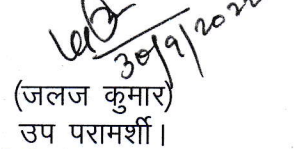 30/9/2022
(जलज कुमार)
उप परामर्शी।